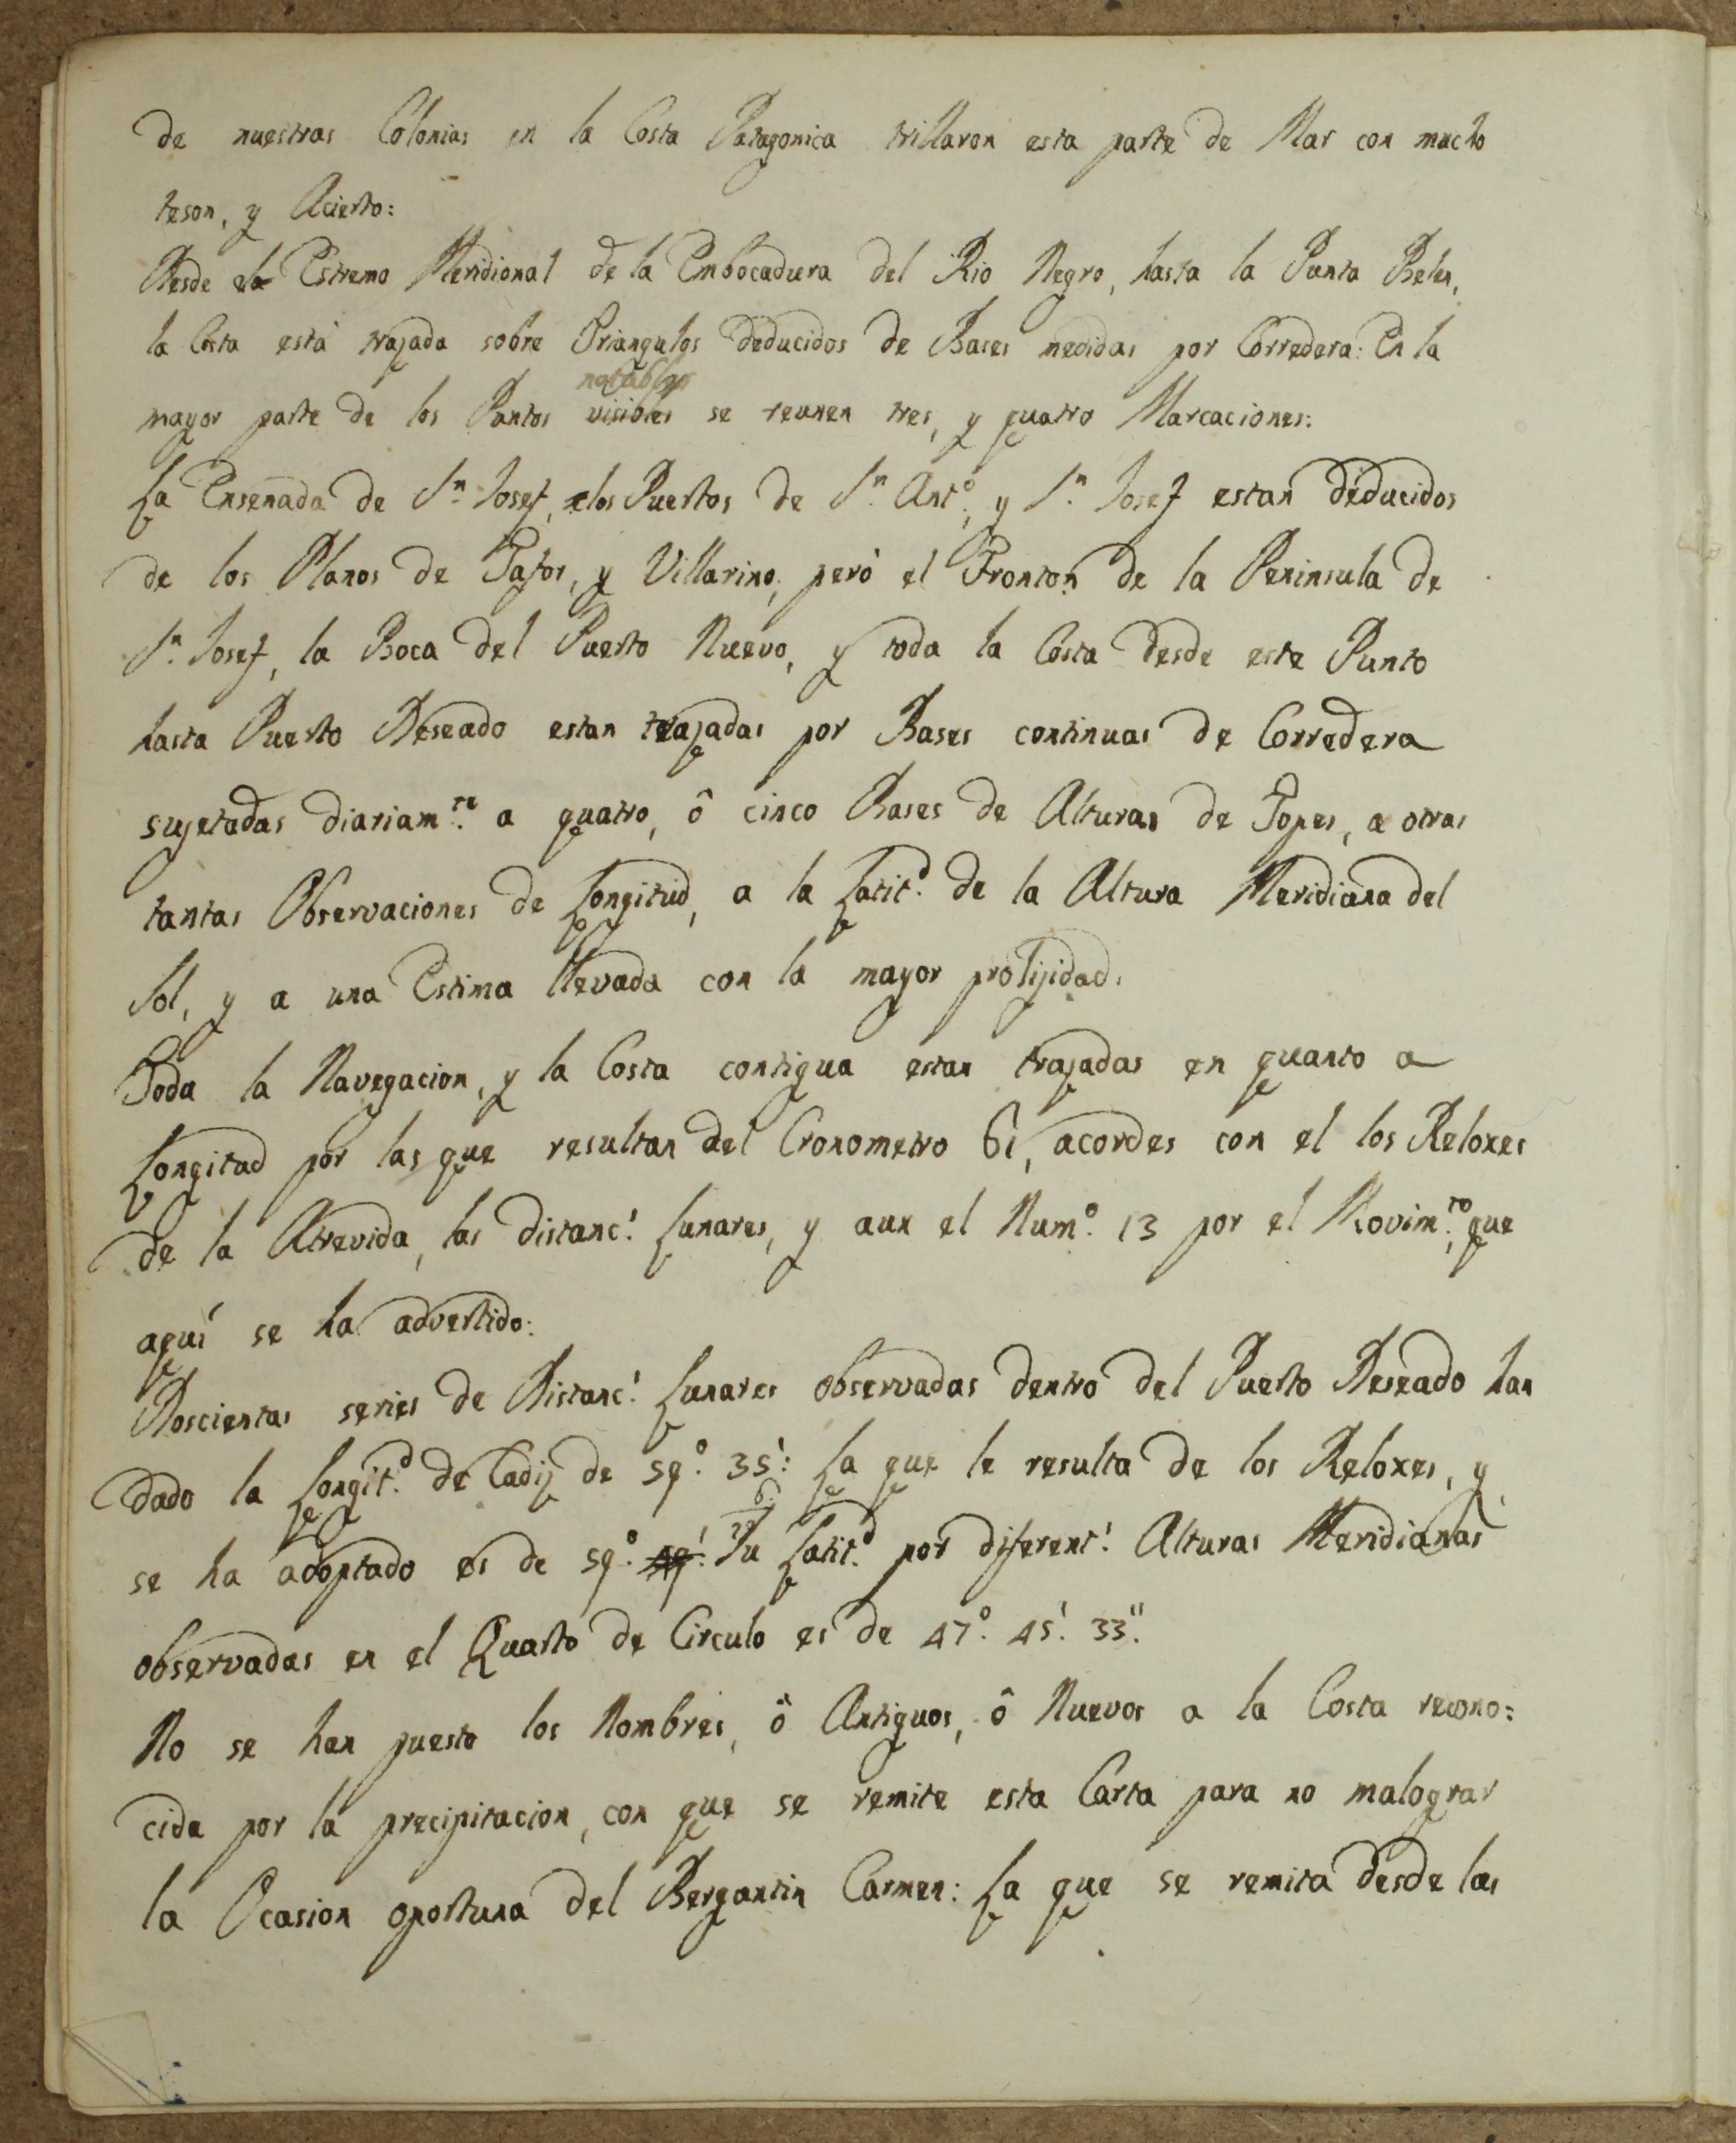 de nuestras Colonias en la Costa Patagonica trillaron esta parte de Mar con mucho
teson, y Acierto:
Desde el Estremo Meridional de la Embocadura del Rio Negro, hasta la Punta Belen,
la Costa està trazada sobre Triangulos deducidos de Bases medidas por Corredera: En la
notables
mayor parte de los Puntos visibles se reunen tres, y quatro Marcaciones:
La Ensenada de Sn. Josef, los Puertos de Sn. Anto., y Sn. Josef estan deducidos
de los Planos de Tafor, y Villarino, però el Fronton de la Peninsula de
Sn. Josef, la Boca del Puerto Nuevo, y toda la Costa desde este Punto
hasta Puerto Deseado estan trazadas por Bases continuas de Corredera
sujetadas diariamte. a quatro, ô cinco Bases de Alturas de Topes, a otras
tantas Observaciones de Longitud, a la Latitd. de la Altura Meridiana del
Sol, y a una Estima llevada con la mayor prolijidad.
Toda la Navegacion, y la Costa contigua estan trazadas en quanto a
Longitud por las que resultan del Cronometro 61, acordes con el los Reloxes
de la Atrevida, las distancs. Lunares, y aun el Numo. 13 por el Movimto., que
aquí se ha advertido:
Doscientas series de Distancs. Lunares observadas dentro del Puerto Deseado han
dado la Longitd. de Cadiz de 59°. 35': La que le resulta de los Reloxes, y
se ha adoptado es de 59°. Su Latitd. por diferents. Alturas Meridianas
observadas en el Quarto de Circulo es de 47°. 45'. 33''.
No se han puesto los Nombres, ô Antiguos, ô Nuevos a la Costa recono:
cida por la precipitacion, con que se remite esta Carta para no malograr
la Ocasion oportuna del Bergantin Carmen: La que se remita desde las